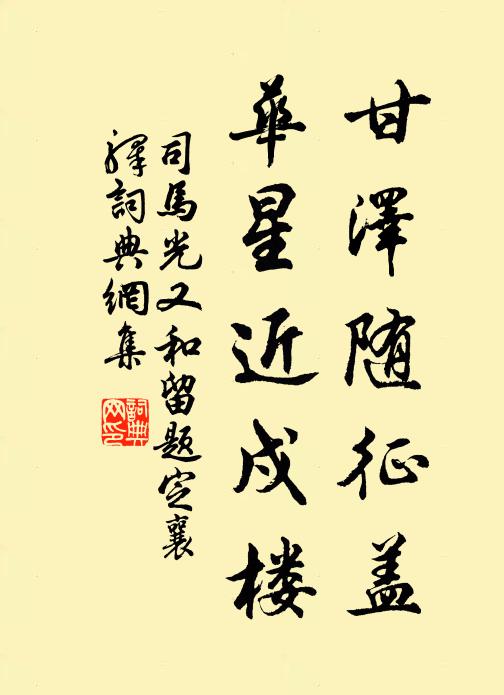 甘澤随征盖
華星近戍楼
司馬光又和留題定襄
驛詞典網集
詞典
网印